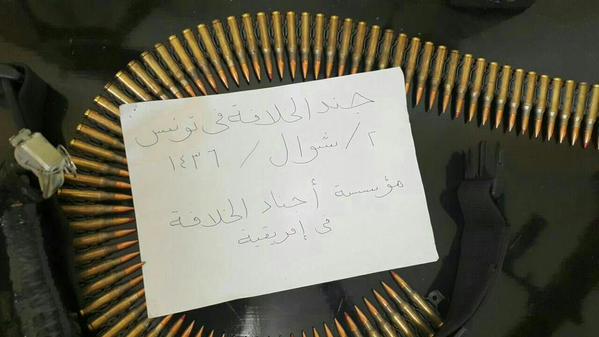 جند الخلافة في تونس
٢ / شوال / ١٤٣٦
مؤسسة أجناد الخلافة
في إفريقية